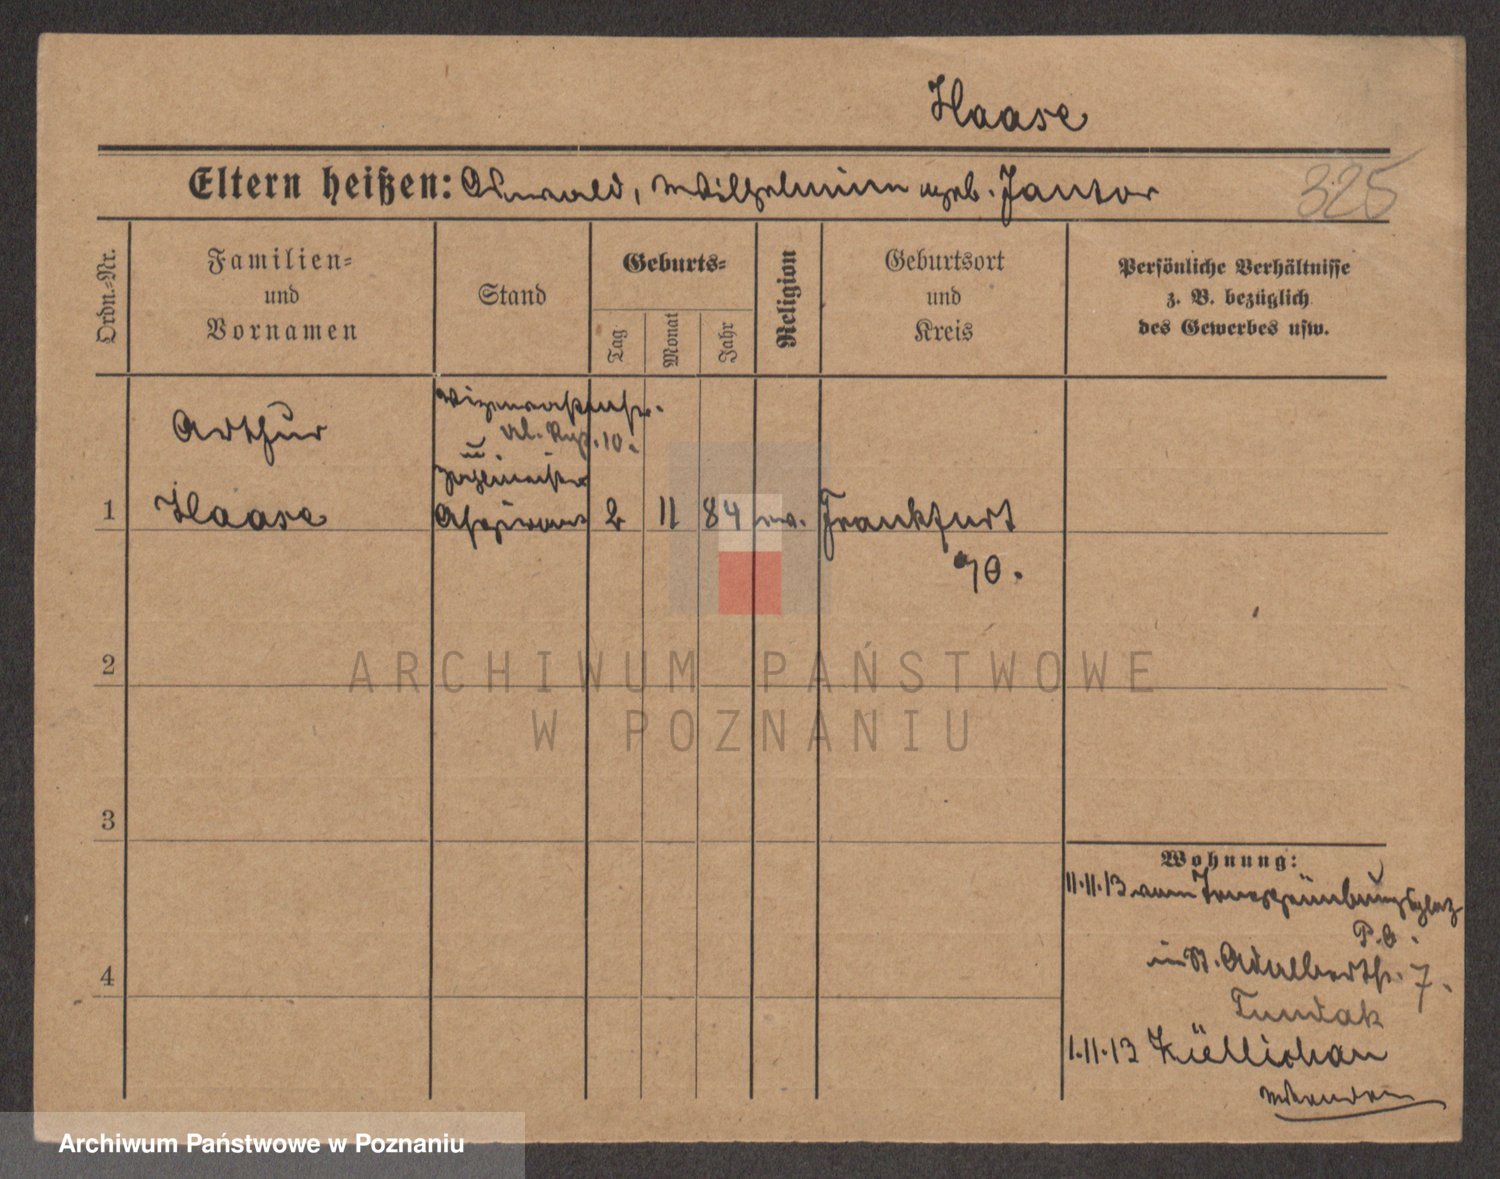 Haase
Eltern heißen: Oswald, Wilhelmine geb. Jantor
325
Ordn.-Nr.
Familien- und Vornamen
Stand
Geburts-
Tag
Monat
Jahr
Religion
Geburtsort und Kreis
Persönliche Verhältnisse z. B. bezüglich des Gewerbes usw.
Arthur
Vizewachtmstr.
u
Zahlmeister
1 Haase Aspirant 2 11 84 ev. Frankfurt
a/O.
2
3
4
Wohnung:
11.11.13 vom Truppenübungsplatz
P.O.
in St. Adalbertstr. 7.
1.11.13 Züllichau
ARCHIWUM PAŃSTWOWE
W POZNANIU
Archiwum Państwowe w Poznaniu